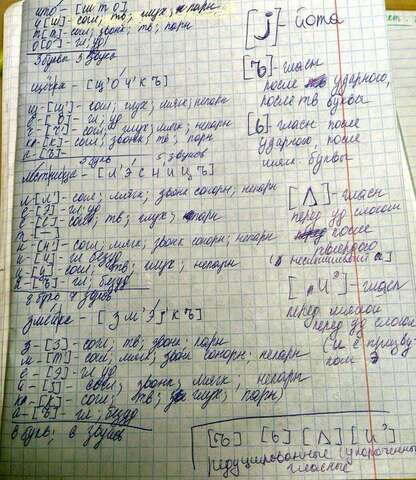 что - [ш т о]
ч [ш] согл; тв; глух; парн
т [т] согл; звонк; тв; парн
о [о] - гл; уд
3 букв 3 звука
щёчка - [щ' о' ч' к ъ]
щ - [щ'] - согл; глух; мягк; непарн
ё - [о] - гл; уд
ч - [ч'] - согл; глух; мягк; непарн
к - [к] - согл; звонк; тв; парн
а - [ъ]
5 букв 5 звуков
лестница - [л' э с н и ц ъ]
л [л'] - согл; мягк; звонк сонорн; непарн
е - [э] - гл уд
с - [с] - согл; тв; глух; парн
т - [-]
н - [н'] - согл; мягк; звонк сонорн; непарн
и - [и] гл безуд
ц - [ц] согл; тв; глух; непарн
а - [ъ] - гл; безуд
8 букв 7 звуков
змейка - [з м' э j к ъ]
з - [з] - согл; тв; звонк; парн
м - [м'] согл; мягк; звонк сонорн; непарн
е - [э] гл уд
й - [j] - согл; звонк; мягк; непарн
к - [к] - согл; тв; глух; парн
а - [ъ] - гл; безуд
6 букв; 6 звуков
[j] - йота
[ъ] - гласн
после ударного,
после тв буквы
[ь] гласн после
ударного, после
мягк. буквы
[Λ] - гласн
перед уд слогом
после
твёрдого
[иэ] - гласн
перед уд слогом
(и с призву-
ком э)
[ъ] [ь] [Λ] [иэ]
редуцированные (укороченные)
гласные